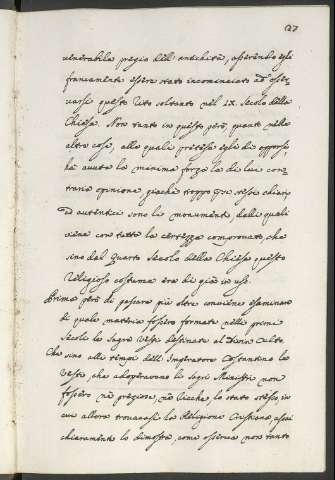 27
venerabile pregio dell' antichità, asserendo egli
francamente essere stato incominciato ad osser,
varsi questo Rito soltanto nel IX. Secolo della
Chiesa. Non tanto in questo però, quanto nelle
altre cose, alle quali pretese egli di opporsi,
ha avuta la minima forza la di lui con,
traria opinione, giacchè troppo per se stessi chiari
ed autentici sono li monumenti, dalli quali
viene con tutta la certezza comprovato, che
sino dal quarto Secolo della Chiesa questo
Religioso costume era di già in uso.
Prima però di passare più oltre conviene esaminare
di quale materia fossero formate nelli primi
Secoli le Sagre Vesti destinate al Divin Culto.
Che sino alli tempi dell' Imperatore Costantino le
Vesti, che adoperavano li Sagri Ministri non
fossero nè preziose, nè ricche, lo stato stesso, in
cui allora trovavasi la Religione Cristiana, assai
chiaramente lo dimostra, come osserva non tanto